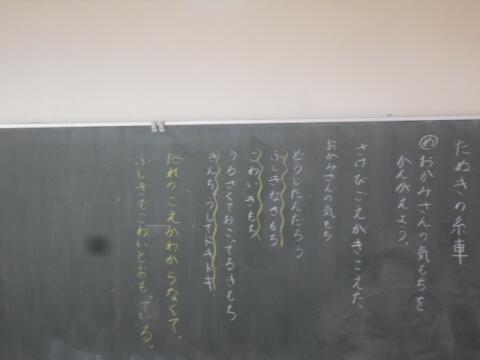 たぬきの糸車
めおかみさんの気もちを
かんがえよう。
さけびごえがきこえた。
おかみさんの気もち
どうしたんだろう
ふしぎなきもち
こわいきもち
うるさくておこってるきもち
きんちょうしてドキドキ
だれのこえかわからなくて、
ふしぎでこわいとおもっている。